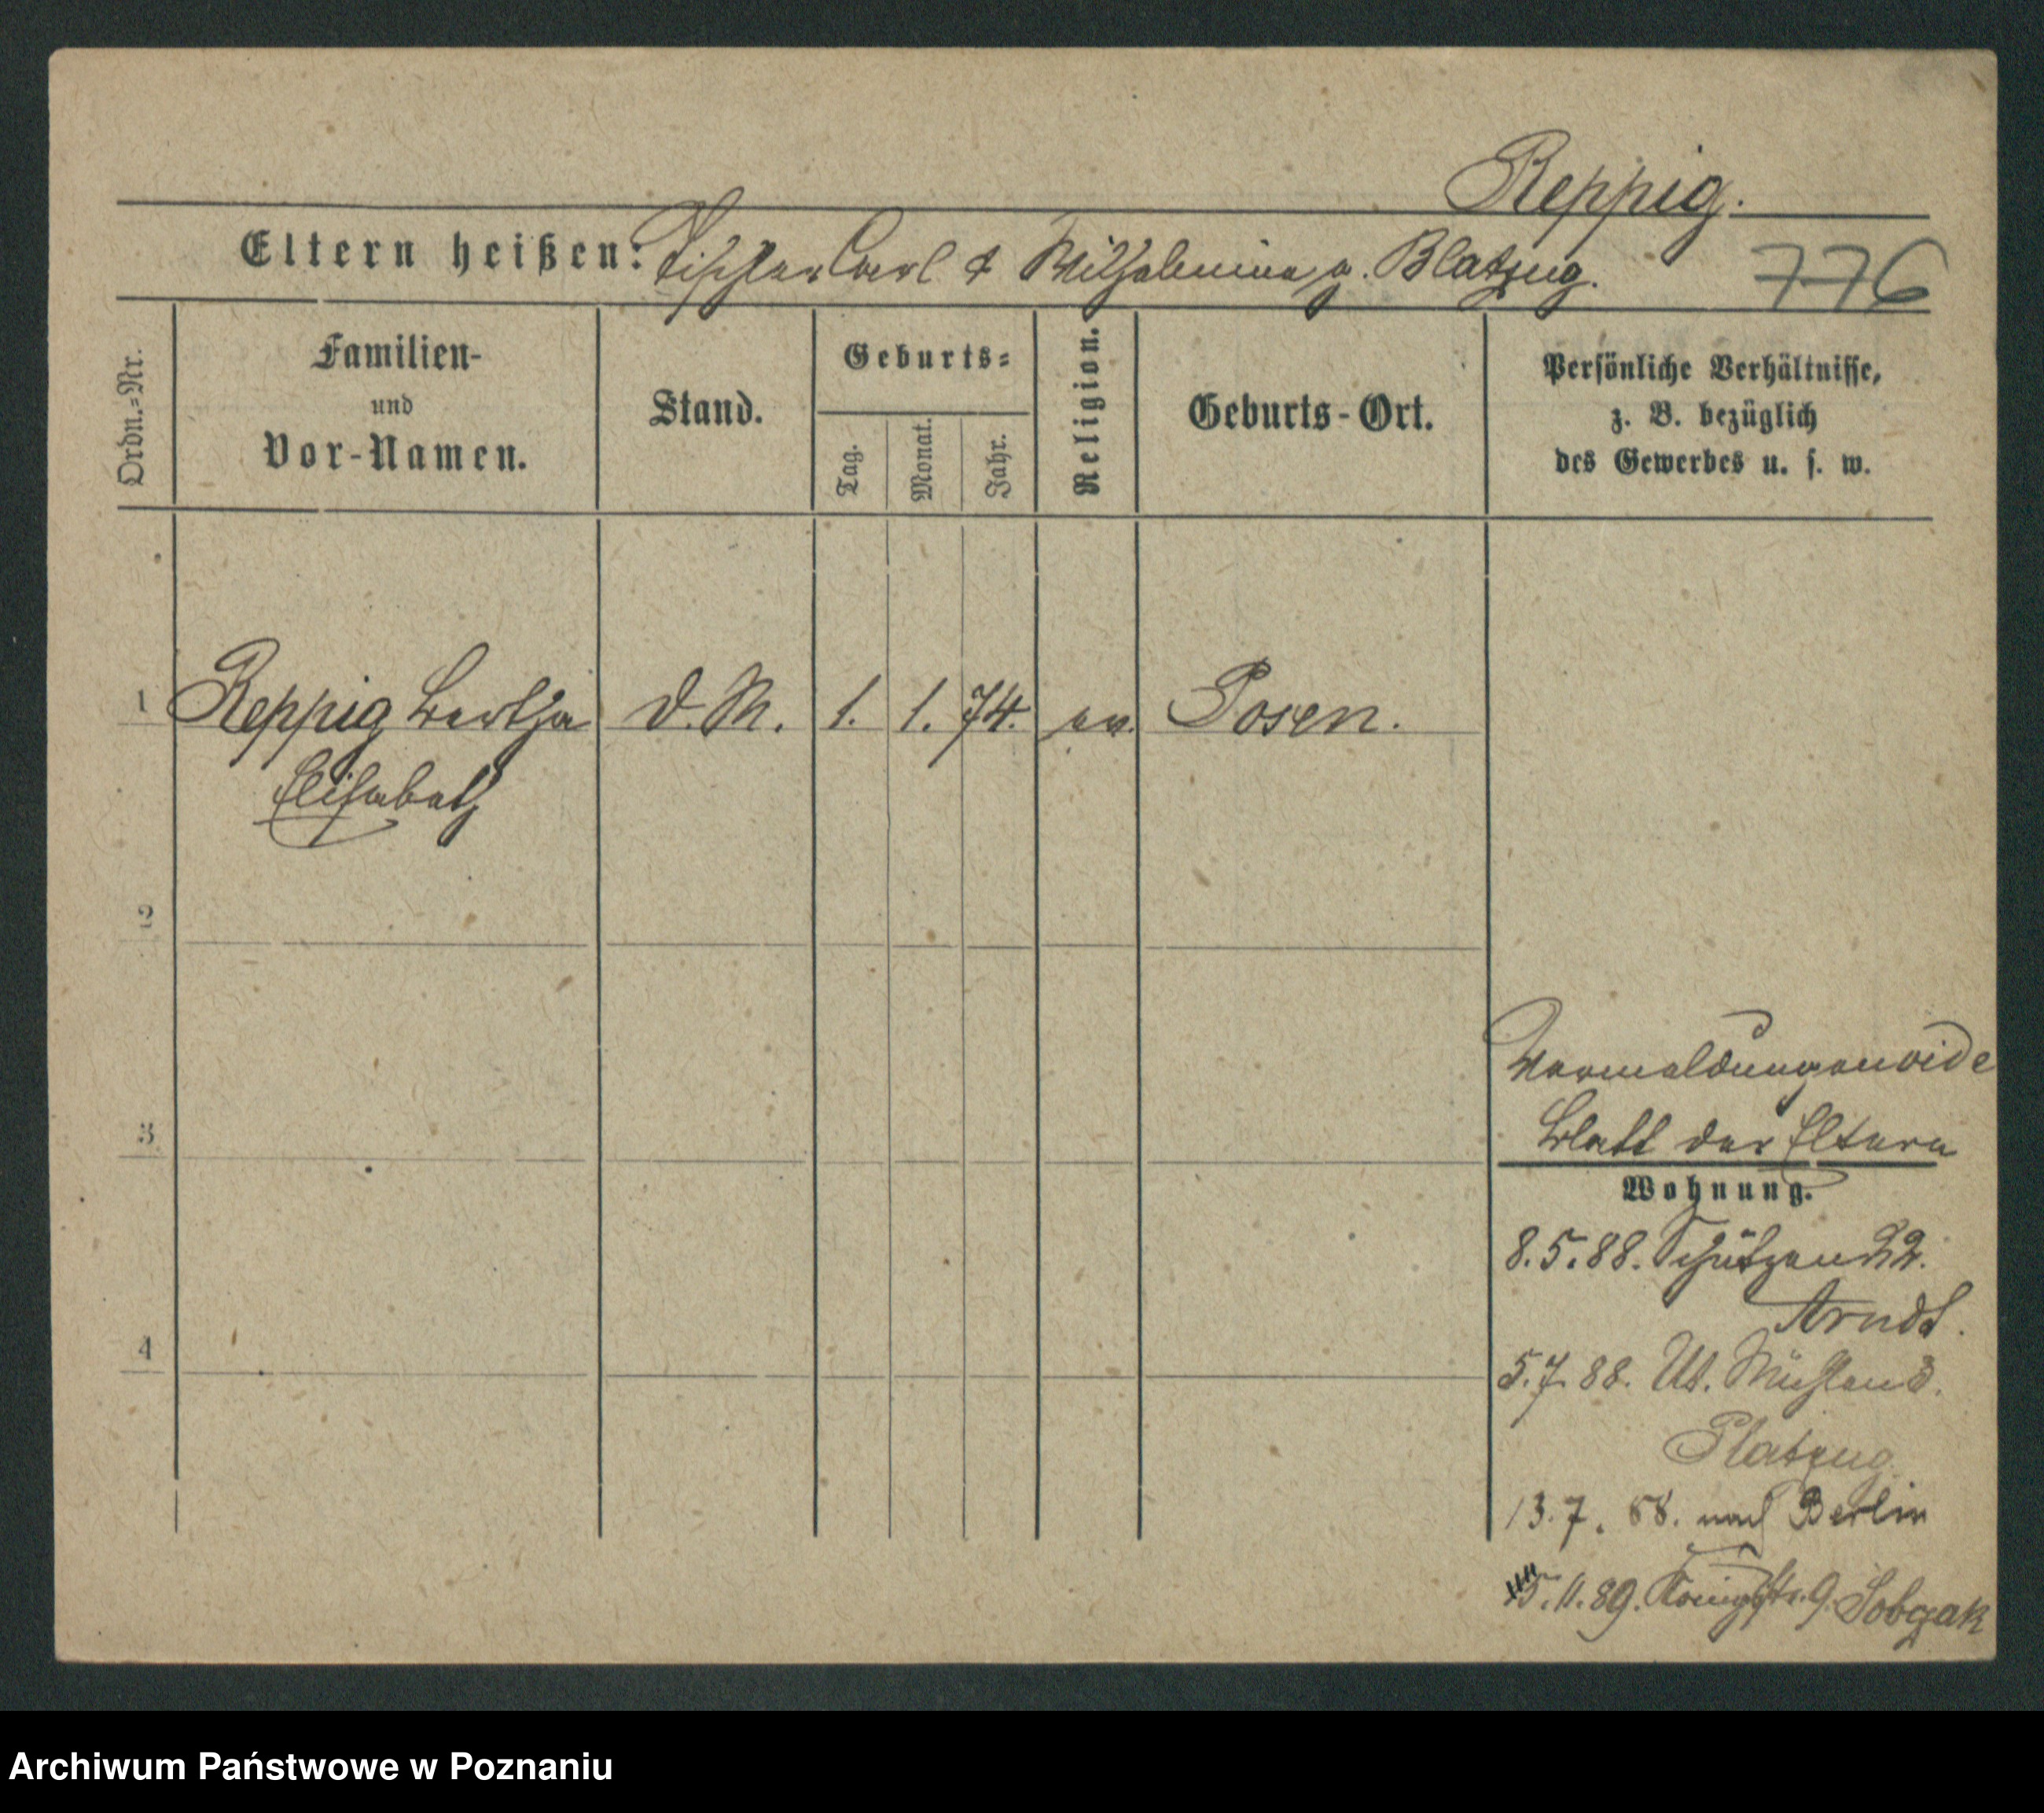 Reppig.
Eltern heißen: Tischler Carl & Wilhelmine g. Blatzug.
776
Ordn.=Nr.
Familien-
und
Vor-Namen.
Stand.
Geburts=
Tag.
Monat.
Jahr.
Religion.
Geburts-Ort.
Persönliche Verhältnisse,
z. B. bezüglich
des Gewerbes u. s. w.
1 Reppig Bertha D. M. 1. 1. 74. ev. Posen.
Elisabeth
2
3
4
Vormeldungen vide
Blatt der Eltern
Wohnung.
8.5.88. Schützen 22.
Arndt.
5.7.88. Ut. Mühlen 3.
Platzug.
13.7.88. nach Berlin
5.11.89. Königstr. 9. Sobczak
Archiwum Państwowe w Poznaniu